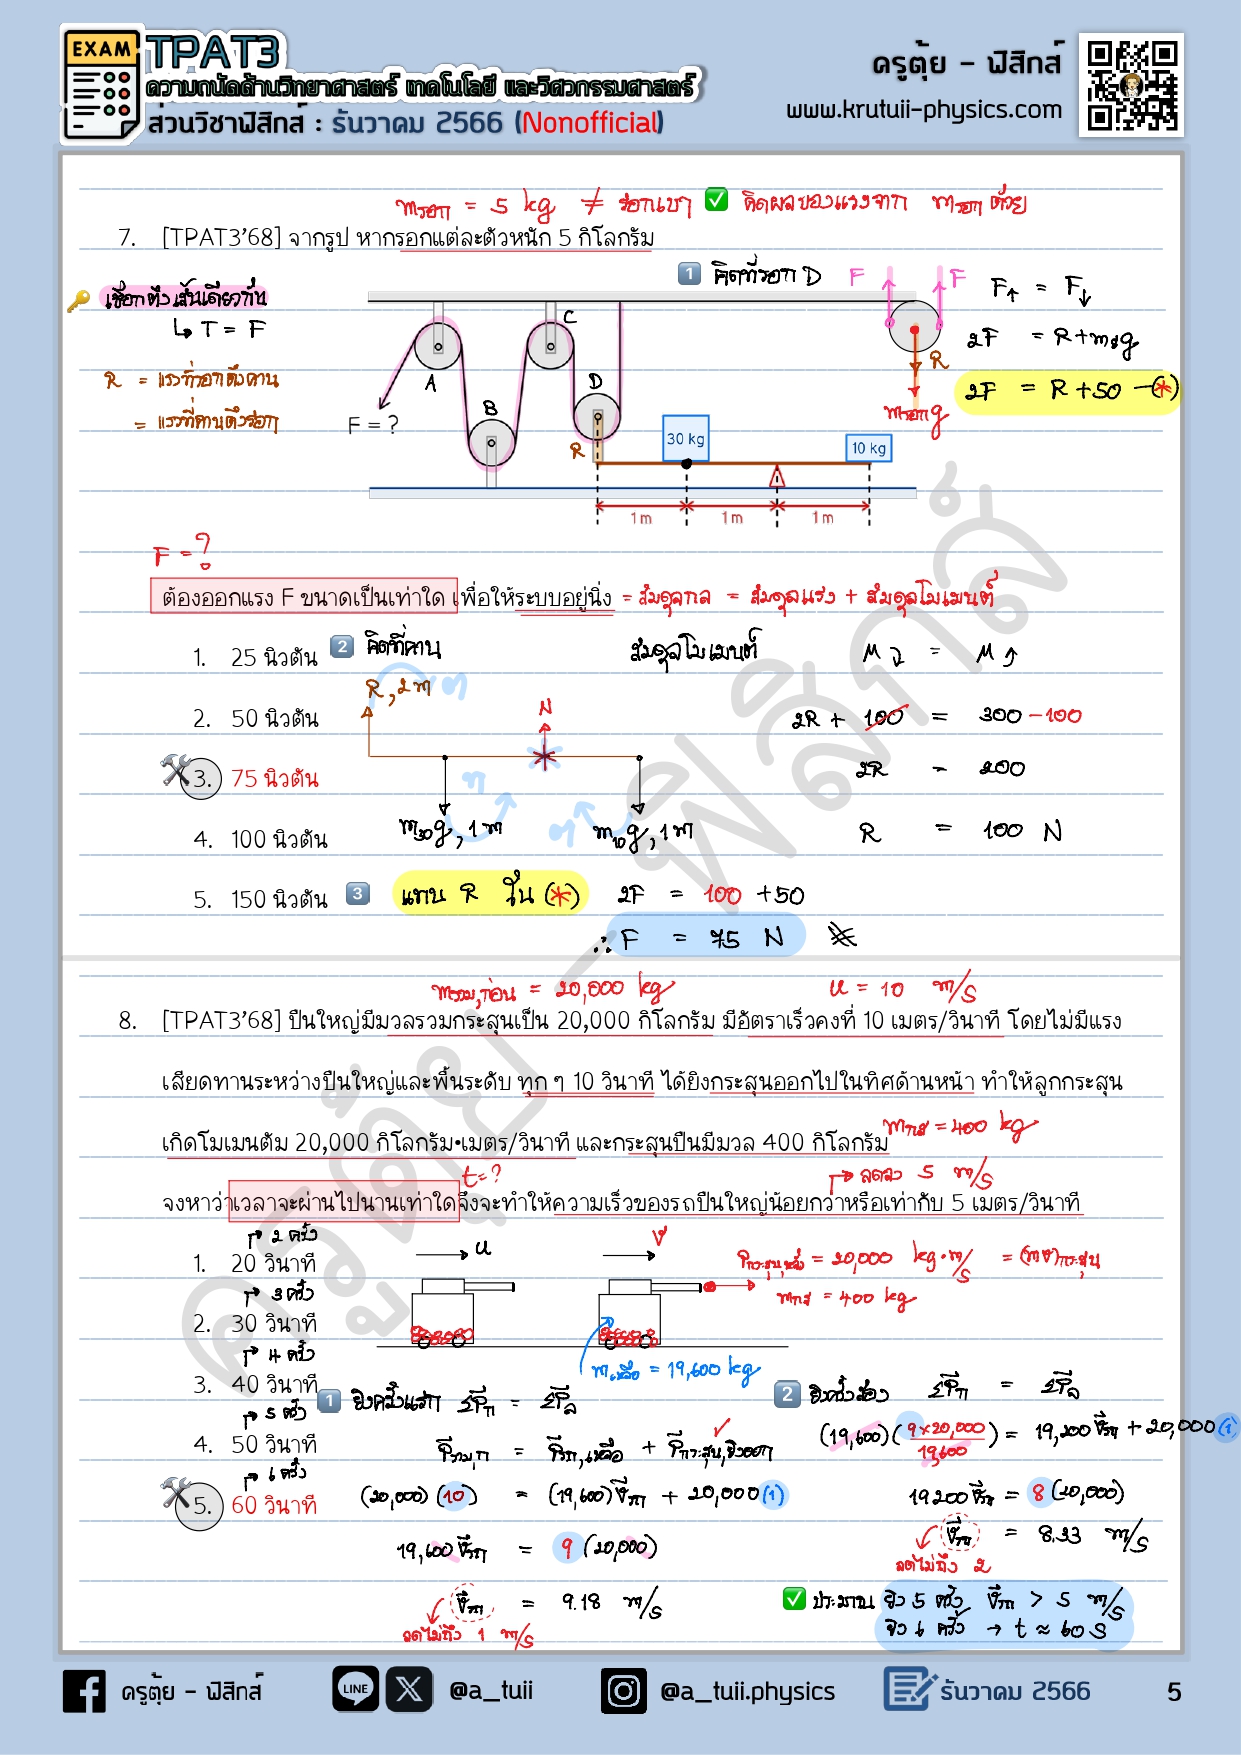 EXAM
TPAT3
ความถนัดด้านวิทยาศาสตร์ เทคโนโลยี และวิศวกรรมศาสตร์
ส่วนวิชาฟิสิกส์ : ธันวาคม 2566 (Nonofficial)
ครูตุ้ย - ฟิสิกส์
www.krutuii-physics.com
mรอก = 5 kg ≠ รอกเบา ✅ คิดผลของแรงจาก mรอก ด้วย
7. [TPAT3'68] จากรูป หากรอกแต่ละตัวหนัก 5 กิโลกรัม
🔑 เชือกตึงเส้นเดียวกัน
↳ T = F
R = แรงที่รอกดึงคาน
= แรงที่คานดึงรอก
1 คิดที่รอก D
A
B
C
D
R
F = ?
30 kg
10 kg
1 m 1 m 1 m
F F
R
mรอกg
F↑ = F↓
2F = R + mรg
2F = R + 50 —(*)
F = ?
ต้องออกแรง F ขนาดเป็นเท่าใด เพื่อให้ระบบอยู่นิ่ง = สมดุลกล = สมดุลแรง + สมดุลโมเมนต์
1. 25 นิวตัน
2. 50 นิวตัน
3. 75 นิวตัน
4. 100 นิวตัน
5. 150 นิวตัน
2 คิดที่คาน
R, 2 m
ต
N
ท
ต
m30g, 1 m
m10g, 1 m
สมดุลโมเมนต์
M = M
2R + 100 = 300 - 100
2R = 200
R = 100 N
3 แทน R ใน (*) 2F = 100 + 50
∴ F = 75 N
mรวม,ก่อน = 20,000 kg
u = 10 m/s
8. [TPAT3'68] ปืนใหญ่มีมวลรวมกระสุนเป็น 20,000 กิโลกรัม มีอัตราเร็วคงที่ 10 เมตร/วินาที โดยไม่มีแรง
เสียดทานระหว่างปืนใหญ่และพื้นระดับ ทุก ๆ 10 วินาที ได้ยิงกระสุนออกไปในทิศด้านหน้า ทำให้ลูกกระสุน
เกิดโมเมนตัม 20,000 กิโลกรัม•เมตร/วินาที และกระสุนปืนมีมวล 400 กิโลกรัม
mกส = 400 kg
t = ?
ลดลง 5 m/s
จงหาว่าเวลาจะผ่านไปนานเท่าใดจึงจะทำให้ความเร็วของรถปืนใหญ่น้อยกว่าหรือเท่ากับ 5 เมตร/วินาที
2 ครั้ง
1. 20 วินาที
3 ครั้ง
2. 30 วินาที
4 ครั้ง
3. 40 วินาที
5 ครั้ง
4. 50 วินาที
6 ครั้ง
5. 60 วินาที
u
v
Pกระสุน,หลัง = 20,000 kg·m/s = (mv)กระสุน
mกส = 400 kg
mเหลือ = 19,600 kg
1 ยิงครั้งแรก ΣPก = ΣPล
Pรวม,ก = Pรถ,เหลือ + Pกระสุน,ยิงออก
(20,000)(10) = (19,600)vรถ + 20,000(1)
19,600 vรถ = 9(20,000)
vรถ = 9.18 m/s
ลดไม่ถึง 1 m/s
2 ยิงครั้งสอง ΣPก = ΣPล
(19,600)(9×20,000/19,600) = 19,200 vรถ + 20,000(1)
19200 vรถ = 8(20,000)
vรถ = 8.33 m/s
ลดไม่ถึง 2
✅ ประมาณ ยิง 5 ครั้ง vรถ > 5 m/s
ยิง 6 ครั้ง → t ≈ 60 s
ครูตุ้ย - ฟิสิกส์
ครูตุ้ย - ฟิสิกส์
LINE
X
@a_tuii
@a_tuii.physics
ธันวาคม 2566
5